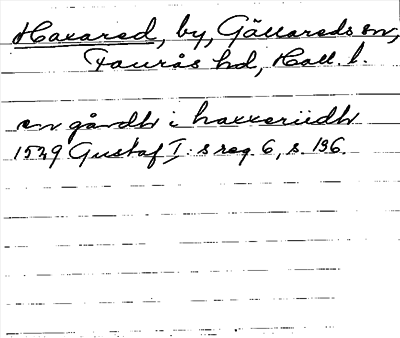 Haxared, by, Gällareds sn,
Faurås hd, Hall. l.
en gårdh i haxeriidh
1529 Gustaf I:s reg. 6, s. 136.